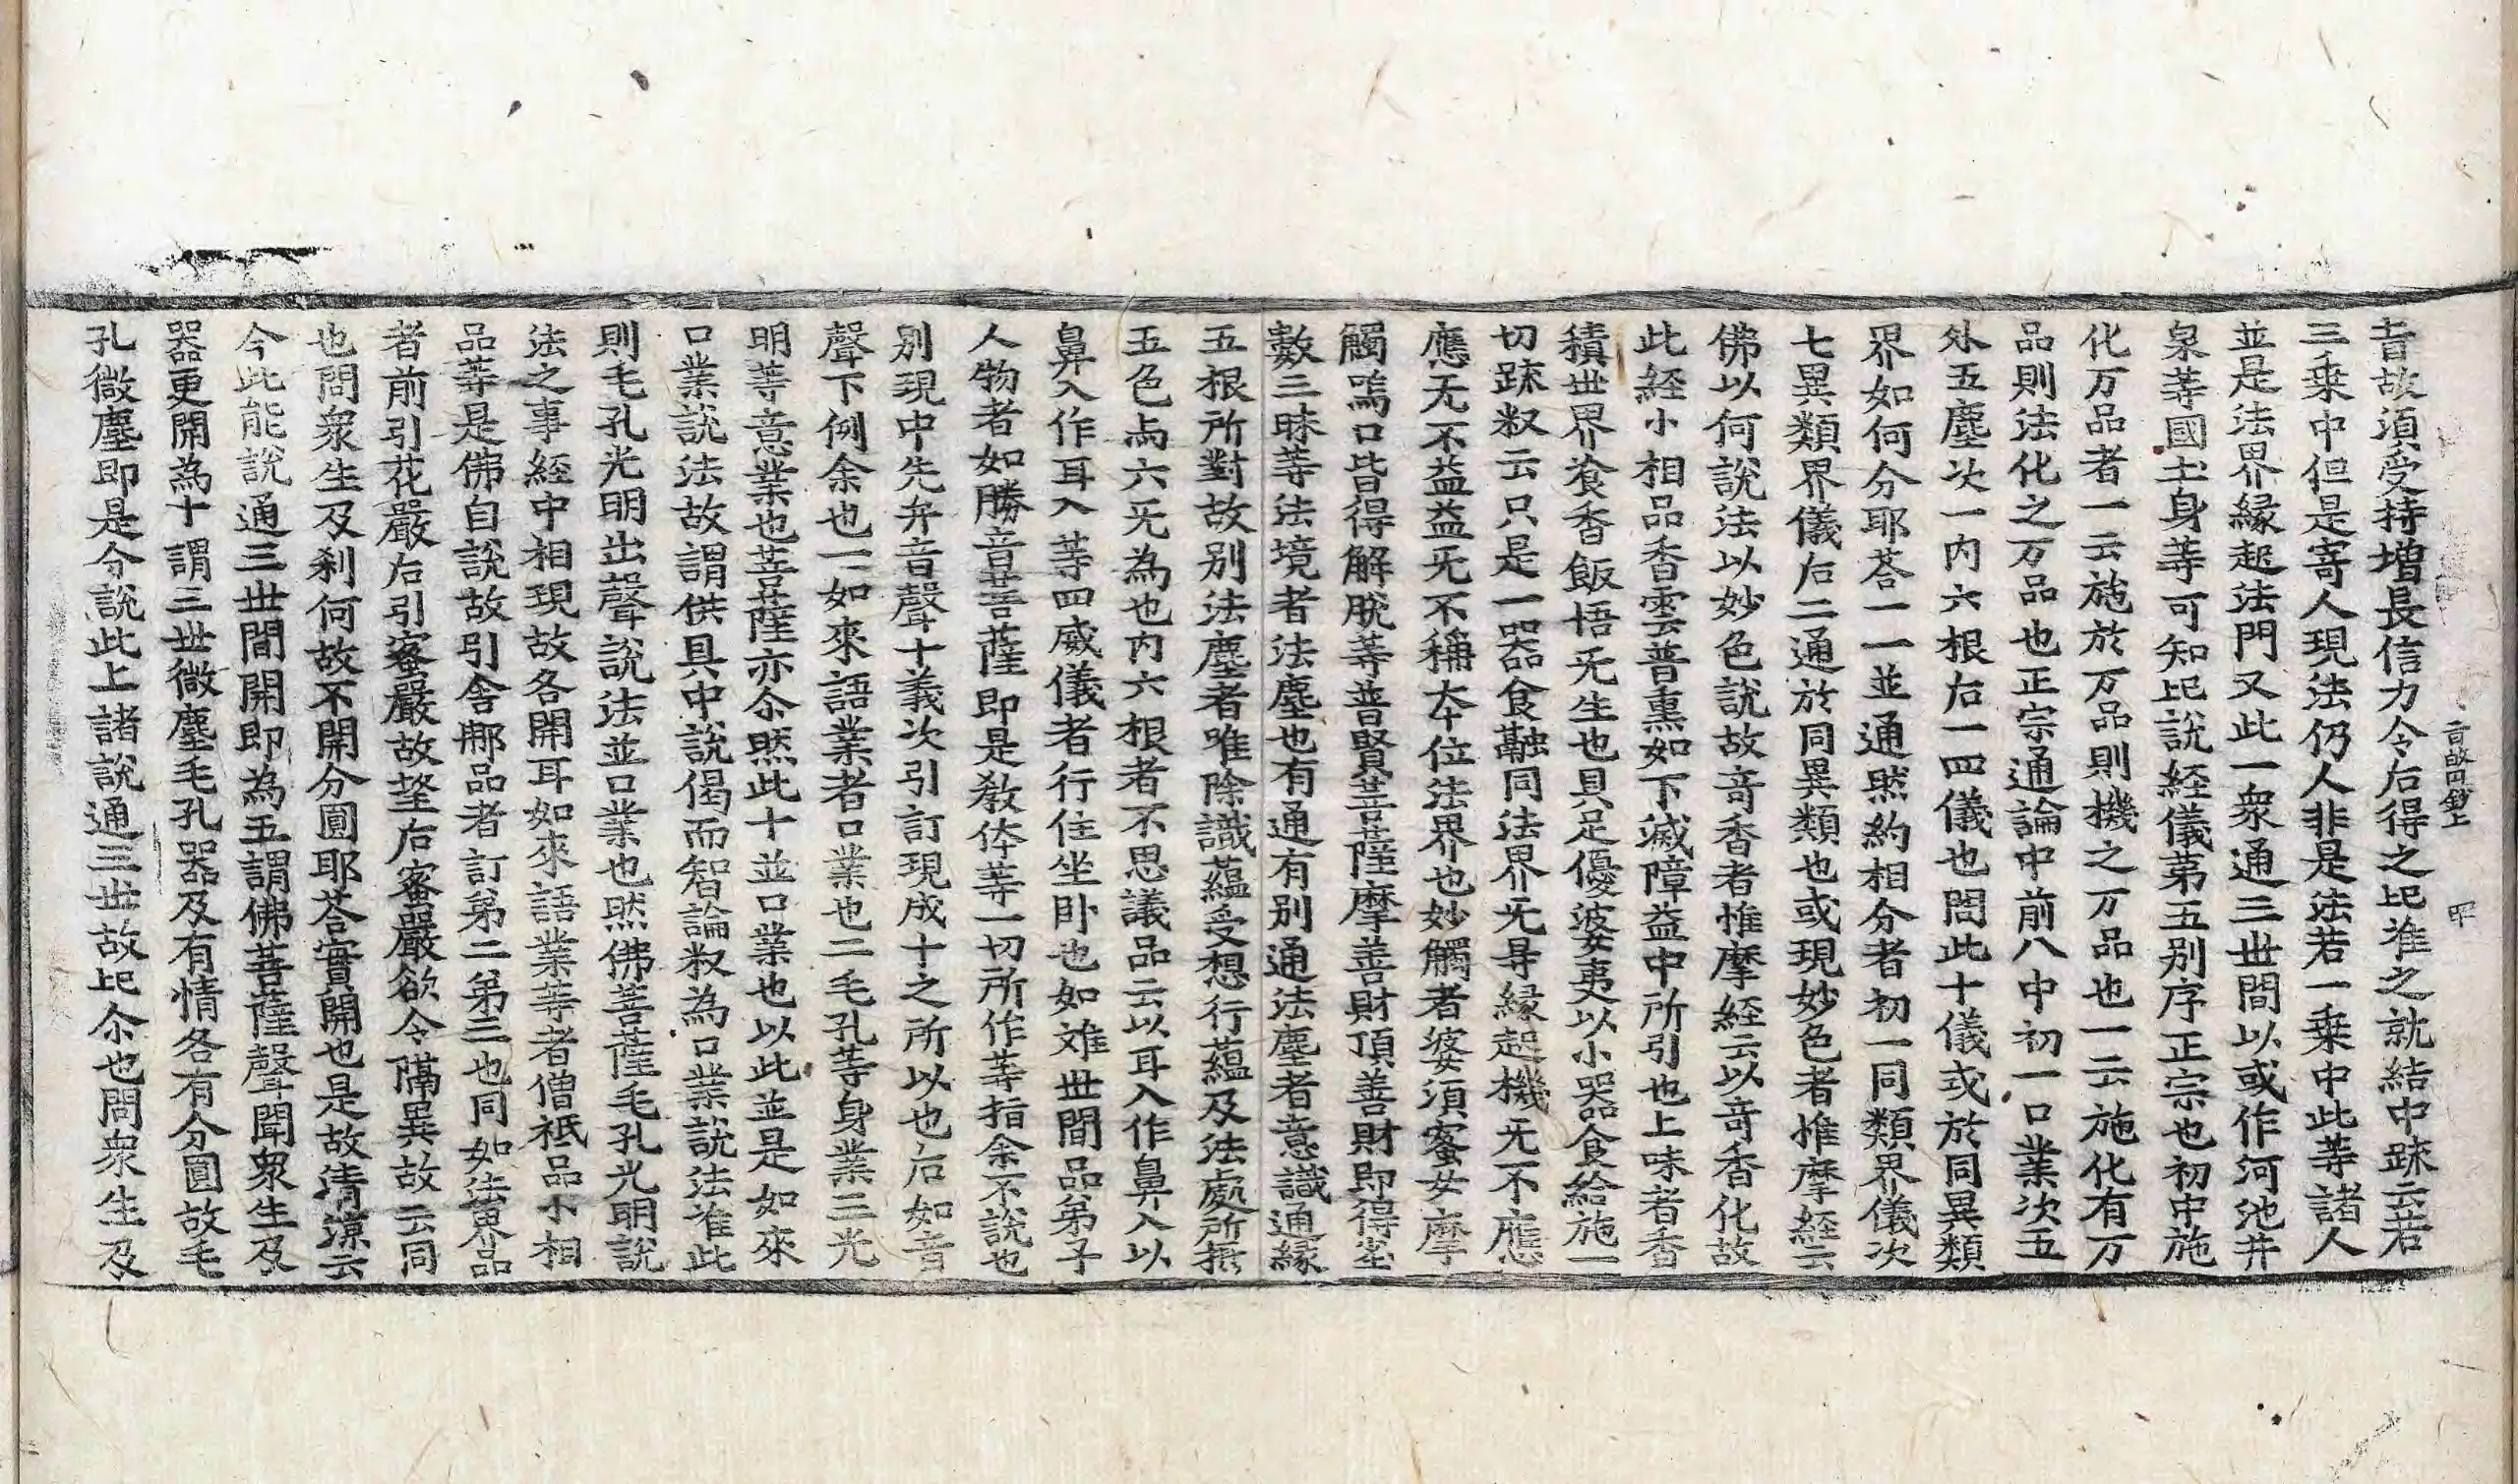 音故円鈔上　四
昔故須受持增長信力令后得之比准之就結中䟽云若
三乘中但是寄人現法仍人非是法若一乘中此等諸人
並是法界緣起法門又此一衆通三世間以或作河池井
泉等國土身等可知比說経儀第五別序正宗也初中施
化万品者一云施於万品則機之万品也一云施化有万
品則法化之万品也正宗通論中前八中初一口業次五
外五塵次一内六根后一四儀也問此十儀或於同異類
界如何分耶荅一一並通然約相分者初一同類界儀次
七異類界儀后二通於同異類也或現妙色者惟摩経云
佛以何說法以妙色說故竒香者惟摩経云以竒香化故
此経小相品香雲普熏如下滅障益中所引也上味者香
積世界飡香飯悟旡生也具足優婆夷以小器食給施一
切䟽釈云只是一器食融同法界旡㝵緣起機旡不應
應旡不益益旡不稱夲位法界也妙觸者婆須蜜女摩
觸嗚口皆得解脫等普賢菩薩摩善財頂善財即得尘
數三昧等法境者法塵也有通有別通法塵者意識通緣
五根所對故別法塵者唯除識蘊受想行蘊及法處所㧞
五色与六旡為也内六根者不思議品云以耳入作鼻入以
鼻入作耳入等四威儀者行住坐卧也如难世間品弟子
人物者如勝音菩薩即是敎体等一切所作等指余不說也
別現中先弁音聲十義次引訂現成十之所以也后如音
聲下例余也一如來語業者口業也二毛孔等身業三光
明等意業也菩薩亦尒然此十並口業也以此並是如來
口業說法故謂供具中說偈而智論釈為口業說法准此
則毛孔光明出聲說法並口業也然佛菩薩毛孔光明說
法之事経中相現故各開耳如來語業等者僧祇品小相
品等是佛自說故引舍那品者訂第二第三也同如法界品
者前引花嚴后引蜜嚴故望后蜜嚴欲令隔異故云同
也問衆生及刹何故不開分圓耶荅實開也是故清涼云
今此能說通三世間開即為五謂佛菩薩聲聞衆生及
器更開為十謂三世微塵毛孔器及有情各有分圓故毛
孔微塵即是今說此上諸說通三世故比尒也問衆生及